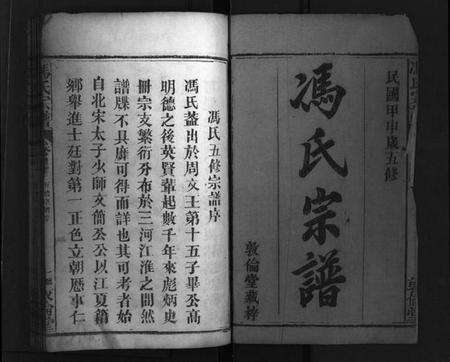 民國甲申歲五修
馮氏宗譜
敦倫堂藏梓
馮氏五修宗譜序
馮氏蓋出於周文王第十五子畢公高
明德之後英賢輩起數千年來彪炳史
冊宗支繁衍分布於三河江淮之間然
譜牒不具靡可得而詳也其可考者始
自北宋太子少師文簡公公以江夏籍
鄉舉進士廷對第一正色立朝歷事仁